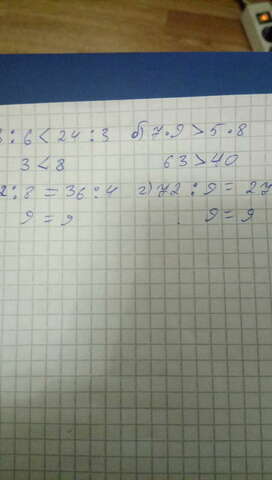 :6<24:3 б) 7·9>5·8
3<8 63>40
2:8=36:4 г) 72:9=27
9=9 9=9